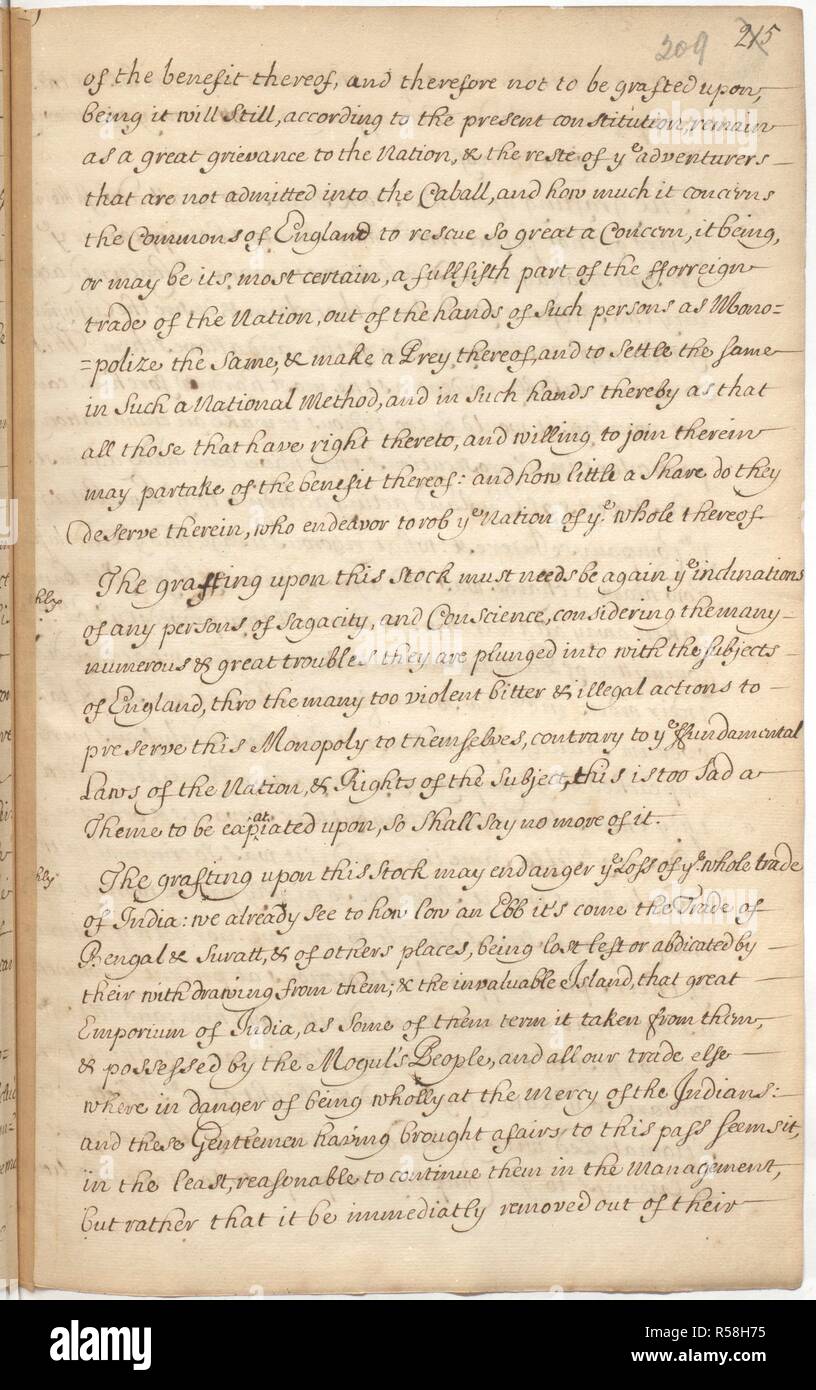 209 215
of the benefit thereof, and therefore not to be grafted upon,
being it will still, according to the present constitution, remain
as a great grievance to the Nation, & the reste of yͤ adventurers
that are not admitted into the Caball, and how much it concerns
the Commons of England to rescue so great a Concern, it being,
or may be its most certain, a full fifth part of the fforreign
trade of the Nation, out of the hands of such persons as Mono=
=polize the same, & make a Prey thereof, and to settle the same
in such a National Method, and in such hands thereby as that
all those that have right thereto, and willing to join therein
may partake of the benefit thereof: and how little a Share do they
deserve therein, who endeavor to rob yͤ Nation of yͤ whole thereof.
The grafting upon this stock must needs be again yͤ inclinations
of any persons of sagacity, and Conscience, considering the many
numerous & great troubles they are plunged into with the subjects
of England, thro the many too violent bitter & illegal actions to
preserve this Monopoly to themselves, contrary to yͤ fundamental
Laws of the Nation, & Rights of the Subject, this is too sad a
Theme to be expatiated upon, so shall say no more of it.
The grafting upon this stock may endanger yͤ Loss of yͤ whole trade
of India: we already see to how low an Ebb it's come the Trade of
Bengal & Suratt, & of others places, being lost left or abdicated by
their with drawing from them; & the invaluable Island, that great
Emporium of India, as some of them term it taken from them,
& possessed by the Mogul's People, and all our trade else
where in danger of being wholly at the mercy of the Indians:
and these Gentlemen having brought afairs to this pass seems it,
in the least, reasonable to continue them in the Management,
but rather that it be immediatly removed out of their
alamy
Image ID: R58H75
www.alamy.com